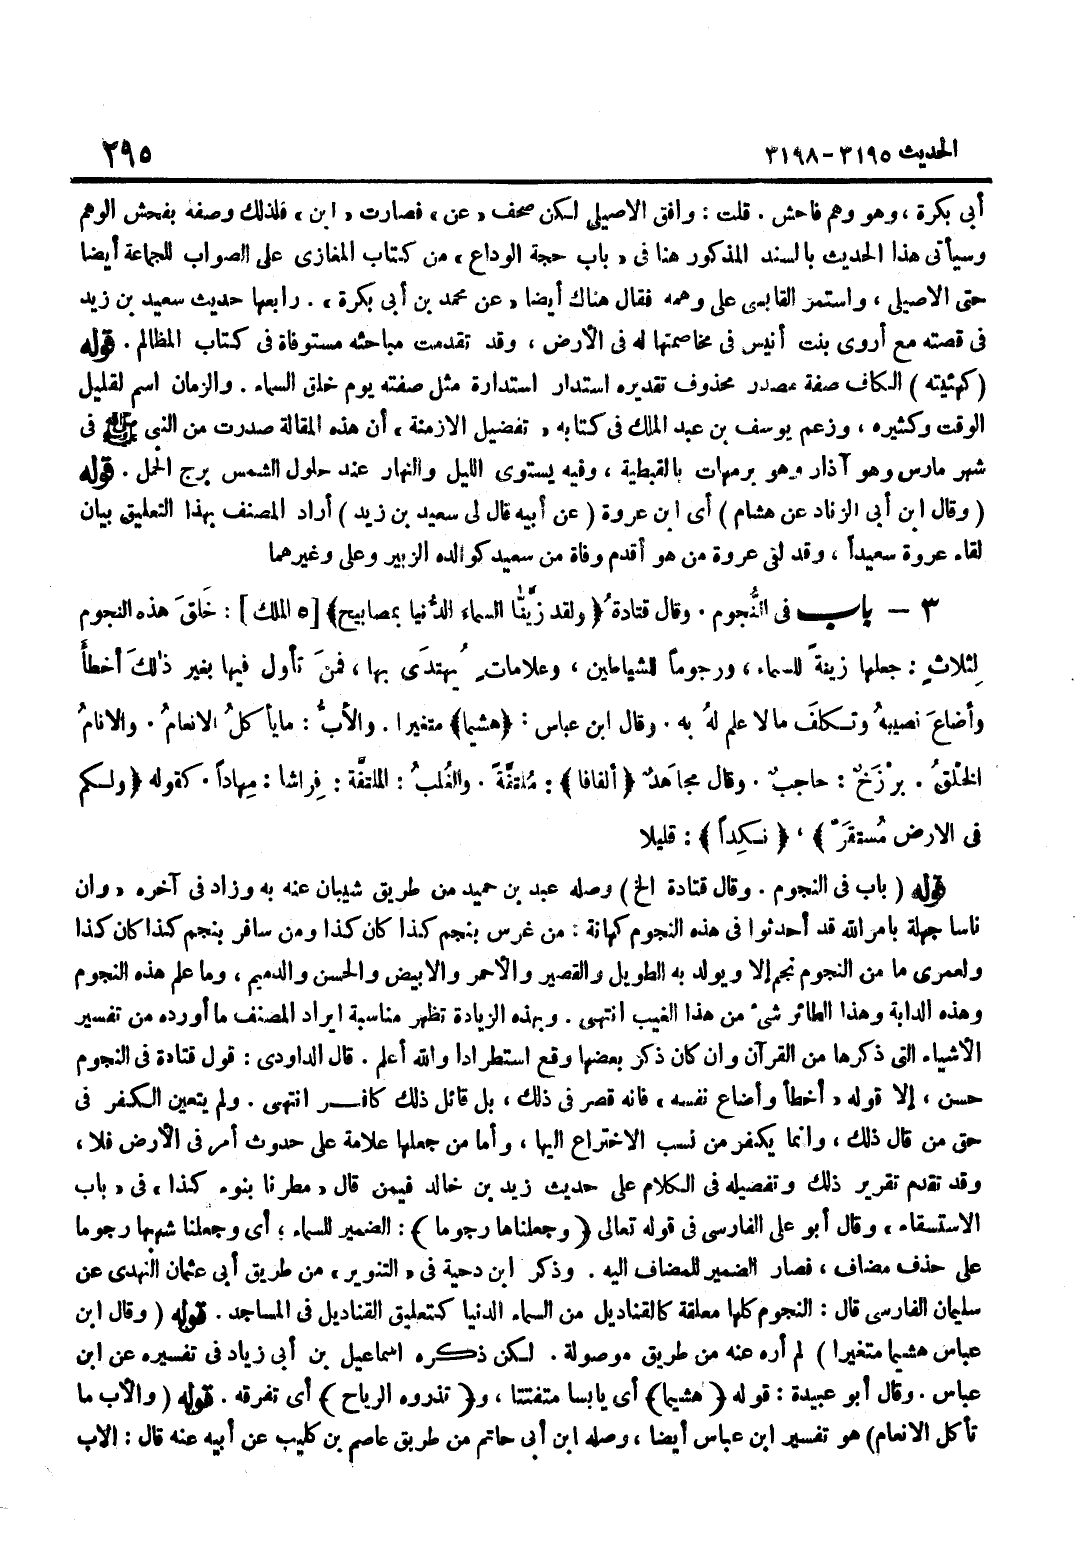 الحديث ٣١٩٥ – ٣١٩٨
٢٩٥
أبى بكرة ، وهو وهم فاحش . قلت : وافق الاصيلى لكن صحف « عن » فصارت « ابن » فلذلك وصفه بفحش الوهم
وسيأتى هذا الحديث بالسند المذكور هنا فى « باب حجة الوداع » من كتاب المغازى على الصواب للجماعة أيضا
حتى الاصيلى ، واستمر القابسى على وهمه فقال هناك أيضا « عن محمد بن أبى بكرة » . رابعها حديث سعيد بن زيد
فى قصته مع أروى بنت أنيس فى مخاصمتها له فى الأرض ، وقد تقدمت مباحثه مستوفاة فى كتاب المظالم . قوله
( كهيئته ) الكاف صفة مصدر محذوف تقديره استدار استدارة مثل صفته يوم خلق السماء . والزمان اسم لقليل
الوقت وكثيره ، وزعم يوسف بن عبد الملك فى كتابه « تفضيل الازمنة » أن هذه المقالة صدرت من النبى ﷺ فى
شهر مارس وهو آذار وهو برمهات بالقبطية ، وفيه يستوى الليل والنهار عند حلول الشمس برج الحمل . قوله
( وقال ابن أبى الزناد عن هشام ) أى ابن عروة ( عن أبيه قال لى سعيد بن زيد ) أراد المصنف بهذا التعليق بيان
لقاء عروة سعيداً ، وقد لقى عروة من هو أقدم وفاة من سعيد كوالده الزبير وعلى وغيرهما
٣ – باب فى النُّجوم . وقال قتادةُ ﴿ ولقد زيَّنَّا السماء الدُّنيا بمصابيح﴾ [ ٥ الملك ] : خَلقَ هذه النجوم
لِثلاثٍ : جعلها زينةً للسماء ، ورجوماً للشياطين ، وعلاماتٍ يُهتدَى بها ، فمنَ تأول فيها بغير ذٰلكَ أخطأَ
وأضاعَ نصيبهُ وتكلفَ مالا علم لهُ به . وقال ابن عباس : ﴿هشيما﴾ متغيرا . والأبُّ : مايأكلُ الانعامُ . والانامُ
الخلْقُ . برْزَخٌ : حاجبٌ . وقال مجاهدٌ ﴿ ألفافا ﴾ : مُلتفَّةً . والغُلبُ : الملتفَّة : فِراشا : مِهاداً . كقوله ﴿ ولكم
فى الارض مُستقرّ ﴾ ، ﴿ نكِداً ﴾ : قليلا
قوله ( باب فى النجوم . وقال قتادة الخ ) وصله عبد بن حميد من طريق شيبان عنه به وزاد فى آخره « وان
ناسا جهلة بامر الله قد أحدثوا فى هذه النجوم كهانة : من غرس بنجم كذا كان كذا ومن سافر بنجم كذا كان كذا
ولعمرى ما من النجوم نجم إلا ويولد به الطويل والقصير والأحمر والابيض والحسن والدميم ، وما علم هذه النجوم
وهذه الدابة وهذا الطائر شىء من هذا الغيب انتهى . وبهذه الزيادة تظهر مناسبة ايراد المصنف ما أورده من تفسير
الأشياء التى ذكرها من القرآن وان كان ذكر بعضها وقع استطرادا والله أعلم . قال الداودى : قول قتادة فى النجوم
حسن ، إلا قوله « أخطأ وأضاع نفسه » فانه قصر فى ذلك ، بل قائل ذلك كافر انتهى . ولم يتعين الكفر فى
حق من قال ذلك ، وانما يكفر من نسب الاختراع اليها ، وأما من جعلها علامة على حدوث أمر فى الأرض فلا ،
وقد تقدم تقرير ذلك وتفصيله فى الكلام على حديث زيد بن خالد فيمن قال « مطرنا بنوء كذا » فى « باب
الاستسقاء » وقال أبو على الفارسى فى قوله تعالى ﴿ وجعلناها رجوما ﴾ : الضمير للسماء ؛ أى وجعلنا شهبها رجوما
على حذف مضاف ، فصار الضمير للمضاف اليه . وذكر ابن دحية فى « التنوير » من طريق أبى عثمان النهدى عن
سليمان الفارسى قال : النجوم كلها معلقة كالقناديل من السماء الدنيا كتعليق القناديل فى المساجد . قوله ( وقال ابن
عباس هشيما متغيرا ) لم أره عنه من طريق موصولة . لكن ذكره اسماعيل بن أبى زياد فى تفسيره عن ابن
عباس . وقال أبو عبيدة : قوله ﴿ هشيما﴾ أى يابسا متفتتا ، و﴿ تذروه الرياح ﴾ أى تفرقه . قوله ( والأب ما
تأكل الانعام) هو تفسير ابن عباس أيضا ، وصله ابن أبى حاتم من طريق عاصم بن كليب عن أبيه عنه قال : الاب